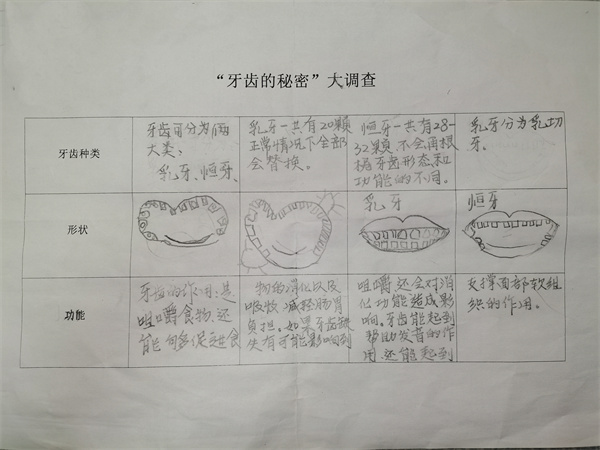 “牙齿的秘密”大调查
牙齿种类
牙齿可分为俩
大类:
乳牙、恒牙、
乳牙一共有20颗
正常情况下全部
会替换。
恒牙一共有28-
32颗,不会再根
据牙齿形态和
功能的不同。
乳牙分为乳切
牙。
形状
乳牙
恒牙
功能
牙齿的作用:是
咀嚼食物,还
能够多促进食
物的消化以及
吸收,减轻肠胃
负担。如果牙齿缺
失有可能影响到
咀嚼,还会对消
化功能造成影
响。牙齿能起到
帮助发音的作
用,还能起到
支撑面部软组
织的作用。